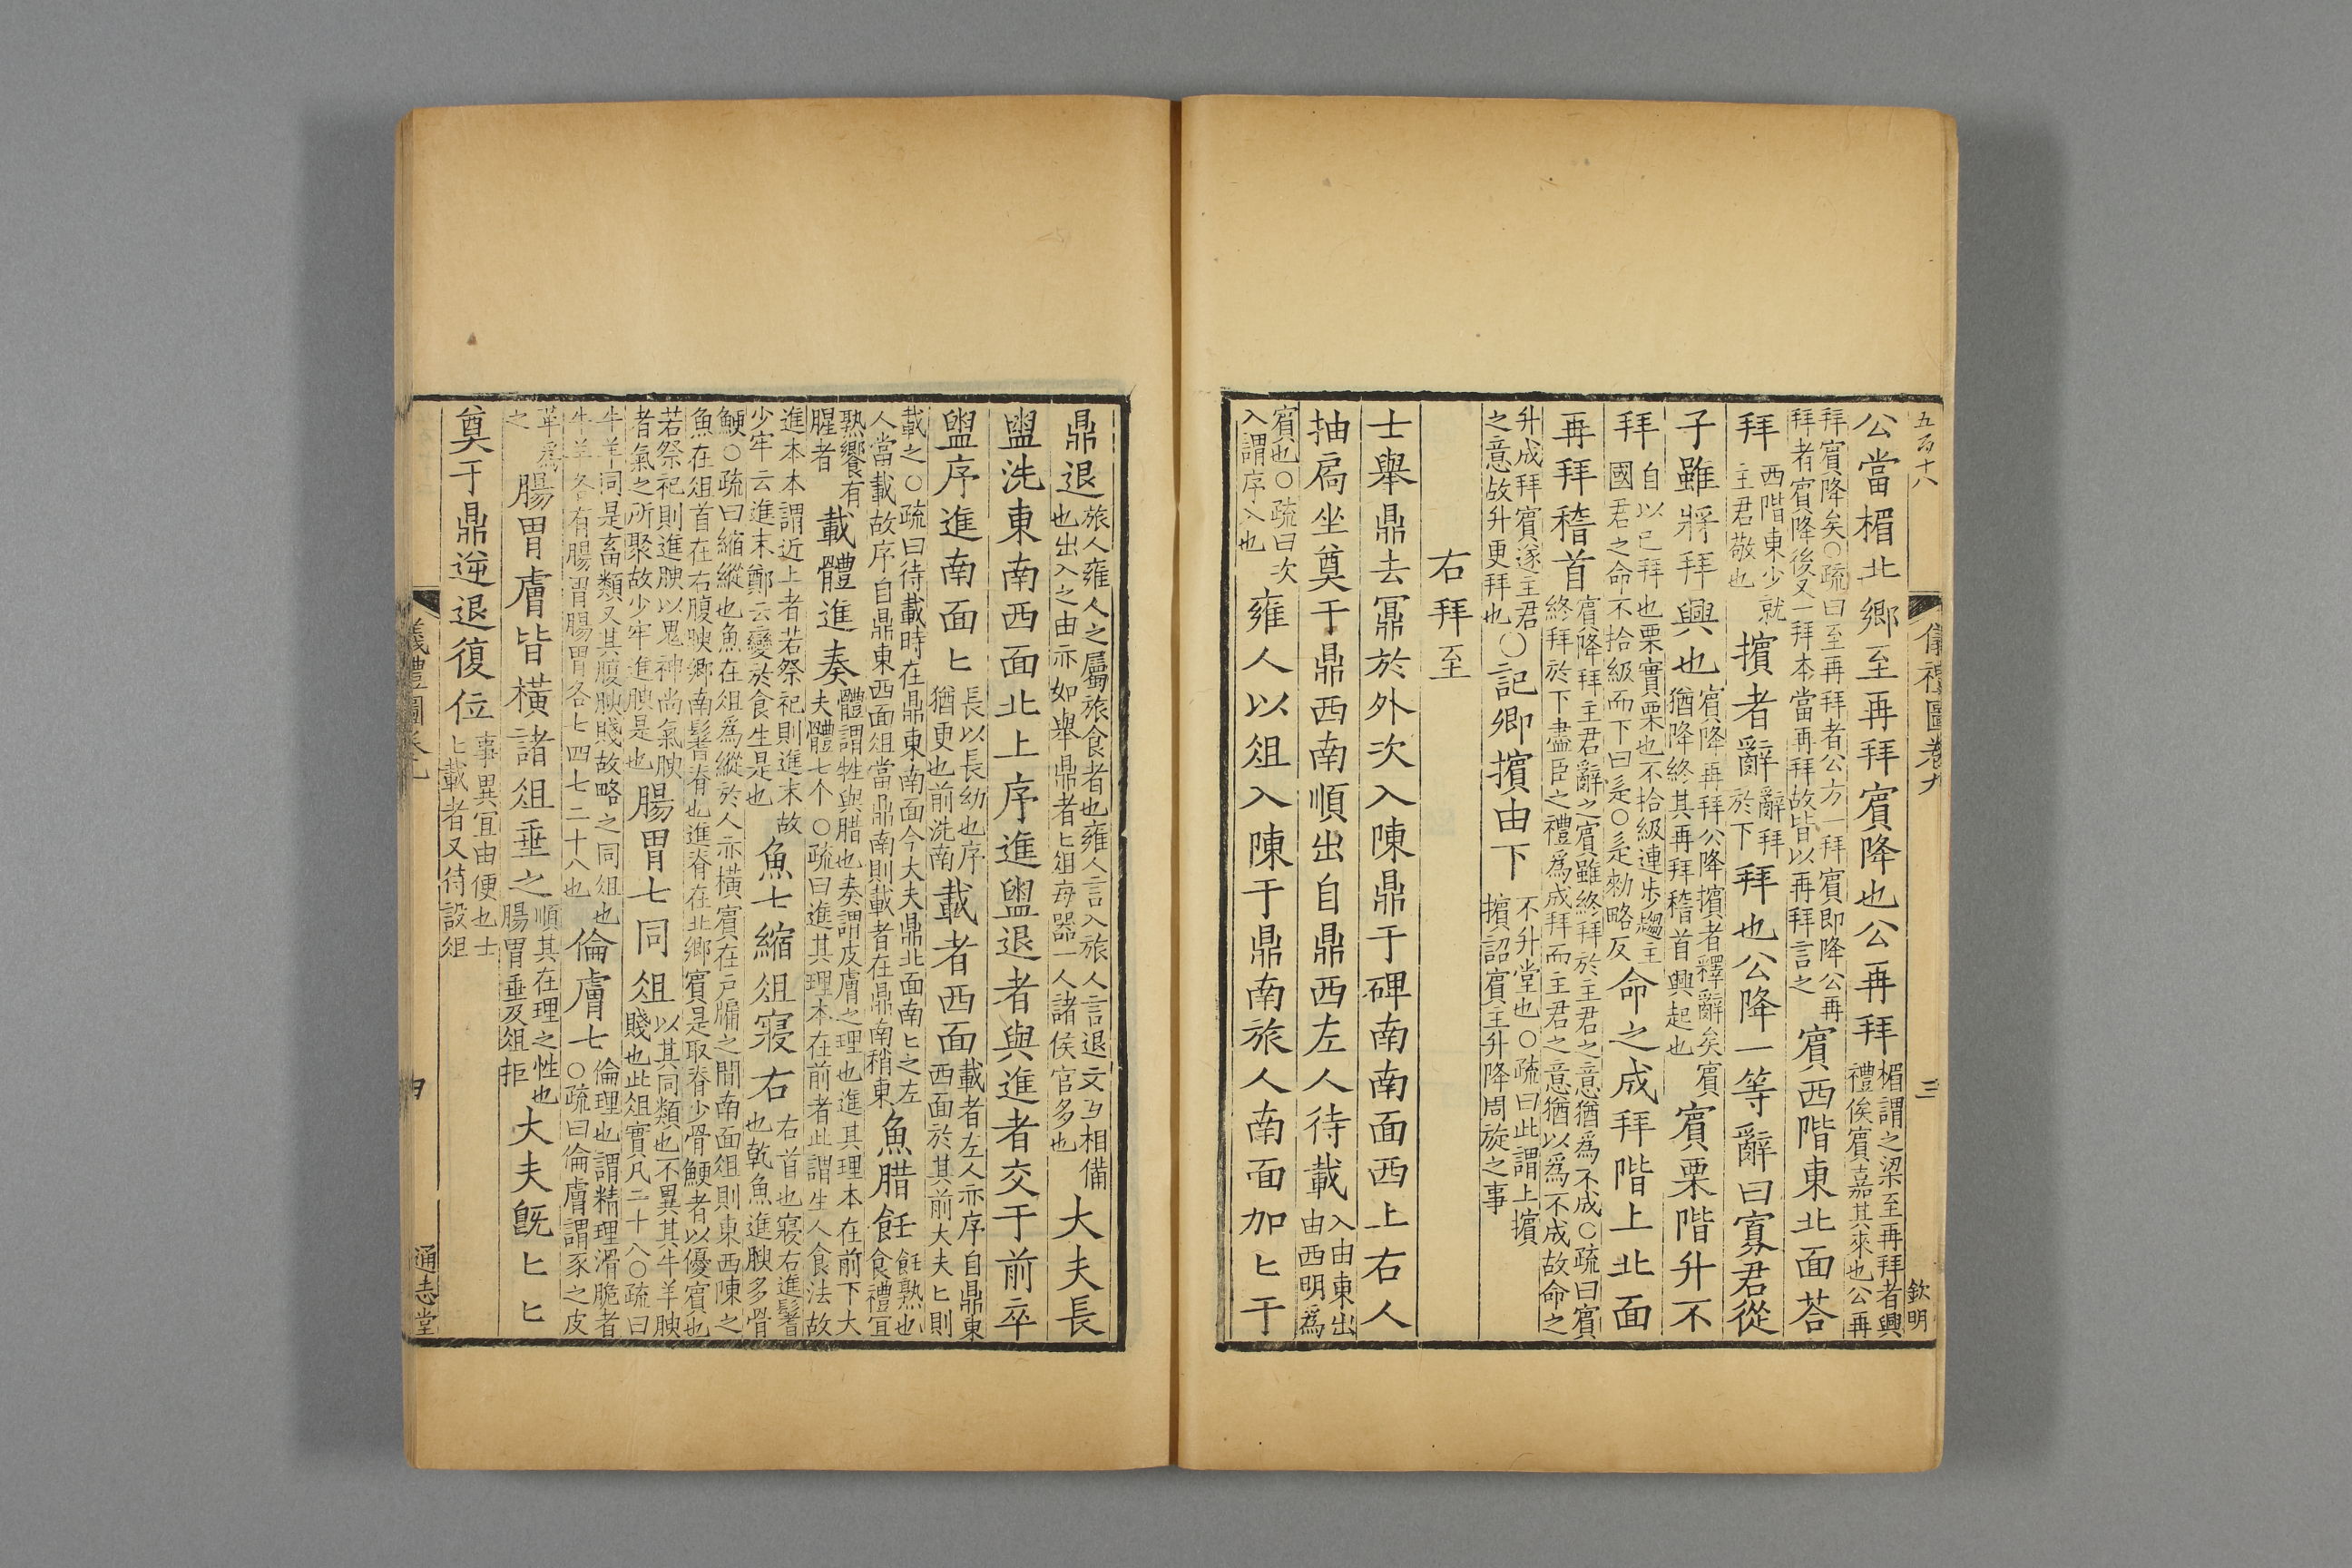 五百十八
儀禮圖卷九
三
欽明
公當楣北鄉至再拜賓降也公再拜
楣謂之梁至再拜者興
禮俟賓嘉其來也公再
拜賓降矣○疏曰至再拜者公方一拜賓即降公再
拜者賓降後又一拜本當再拜故皆以再拜言之
賓西階東北面荅
拜
西階東少就
主君敬也
擯者辭
辭拜
於下
拜也公降一等辭曰寡君從
子雖將拜興也
賓降再拜公降擯者釋辭矣賓
猶降終其再拜稽首興起也
賓栗階升不
拜
自以已拜也栗實栗也不拾級連步趨主
國君之命不拾級而下曰辵○辵勑略反
命之成拜階上北面
再拜稽首
賓降拜主君辭之賓雖終拜於主君之意猶爲不成○疏曰賓
終拜於下盡臣之禮爲成拜而主君之意猶以爲不成故命之
升成拜賓遂主君
之意故升更拜也
○記卿擯由下
不升堂也○疏曰此謂上擯
擯詔賓主升降周旋之事
右拜至
士舉鼎去鼏於外次入陳鼎于碑南南面西上右人
抽扃坐奠于鼎西南順出自鼎西左人待載
入由東出
由西明爲
賓也○疏曰次
入謂序入也
雍人以俎入陳于鼎南旅人南面加匕于
鼎退
旅人雍人之屬旅食者也雍人言入旅人言退文互相備
也出入之由亦如舉鼎者匕俎每器一人諸侯官多也
大夫長
盥洗東南西面北上序進盥退者與進者交于前卒
盥序進南面匕
長以長幼也序
猶更也前洗南
載者西面
載者左人亦序自鼎東
西面於其前大夫匕則
載之○疏曰待載時在鼎東南面今大夫鼎北面南匕之左
人當載故序自鼎東西面俎當鼎南則載者在鼎南稍東
魚腊飪
飪熟也
食禮宜
熟饗有
腥者
載體進奏
體謂牲與腊也奏謂皮膚之理也進其理本在前下大
夫體七个○疏曰進其理本在前者此謂生人食法故
進本本謂近上者若祭祀則進末故
少牢云進末鄭云變於食生是也
魚七縮俎寢右
右首也寢右進鬐
也乾魚進腴多骨
鯁○疏曰縮縱也魚在俎爲縱於人亦橫賓在戶牖之間南面俎則東西陳之
魚在俎首在右腹腴鄉南鬐脊也進脊在北鄉賓是取脊少骨鯁者以優賓也
若祭祀則進腴以鬼神尚氣腴
者氣之所聚故少牢進腴是也
腸胃七同俎
以其同類也不異其牛羊腴
賤也此俎實凡二十八○疏曰
牛羊同是畜類又其腹腴賤故略之同俎也
牛羊各有腸胃腸胃各七四七二十八也
倫膚七
倫理也謂精理滑脆者
○疏曰倫膚謂豕之皮
革爲
之
腸胃膚皆橫諸俎垂之
順其在理之性也
腸胃垂及俎拒
大夫旣匕匕
奠于鼎逆退復位
事異宜由便也士
匕載者又待設俎
儀禮圖卷九
通志堂